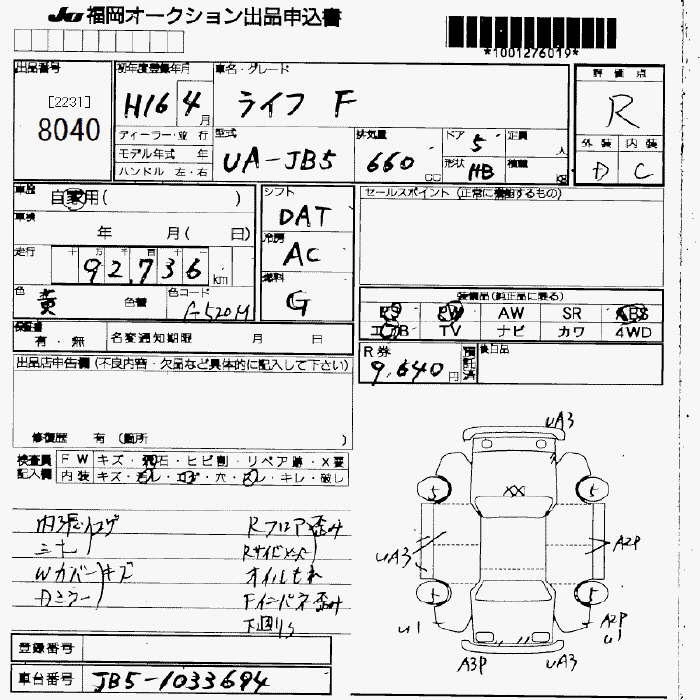 JU福岡オークション出品申込書
*1001276019*
出品番号
[2231]
8040
初年度登録年月
H16 4月
ディーラー・並 行
モデル年式 年
ハンドル 左・右
車名・グレード
ライフ F
型式
UA-JB5
排気量
660 cc
ドア 5
形状 HB
定員 人
積載 kg
評価点
R
外装 内装
D C
車歴
自家用( )
車検
年 月( 日)
走行
十 万 千 百 十
92,736 km
色 黄 色替
色コード
シフト
DAT
冷房
AC
燃料
G
セールスポイント (正常に機能するもの)
装備品(純正品に限る)
PS PW AW SR ABS
エアB TV ナビ カワ 4WD
保証書
有・無
名変通知期限 月 日
R券
9,640円
預託済
後日品
出品店申告欄 (不良内容・欠品など具体的に記入して下さい)
修復歴 有 (箇所 )
検査員記入欄
FW キズ・飛石・ヒビ割・リペア跡・X要
内装 キズ・汚レ・コゲ・穴・スレ・キレ・破し
内張ハガ
Wカバーキズ
Dミラー
Rフロア歪み
オイルもれ
Fインパネ歪み
下回りS
登録番号
車台番号
JB5-1033694
UA3
5
5
XX
UA3
A2P
5
5
U1
A2P
U1
A3P
UA3